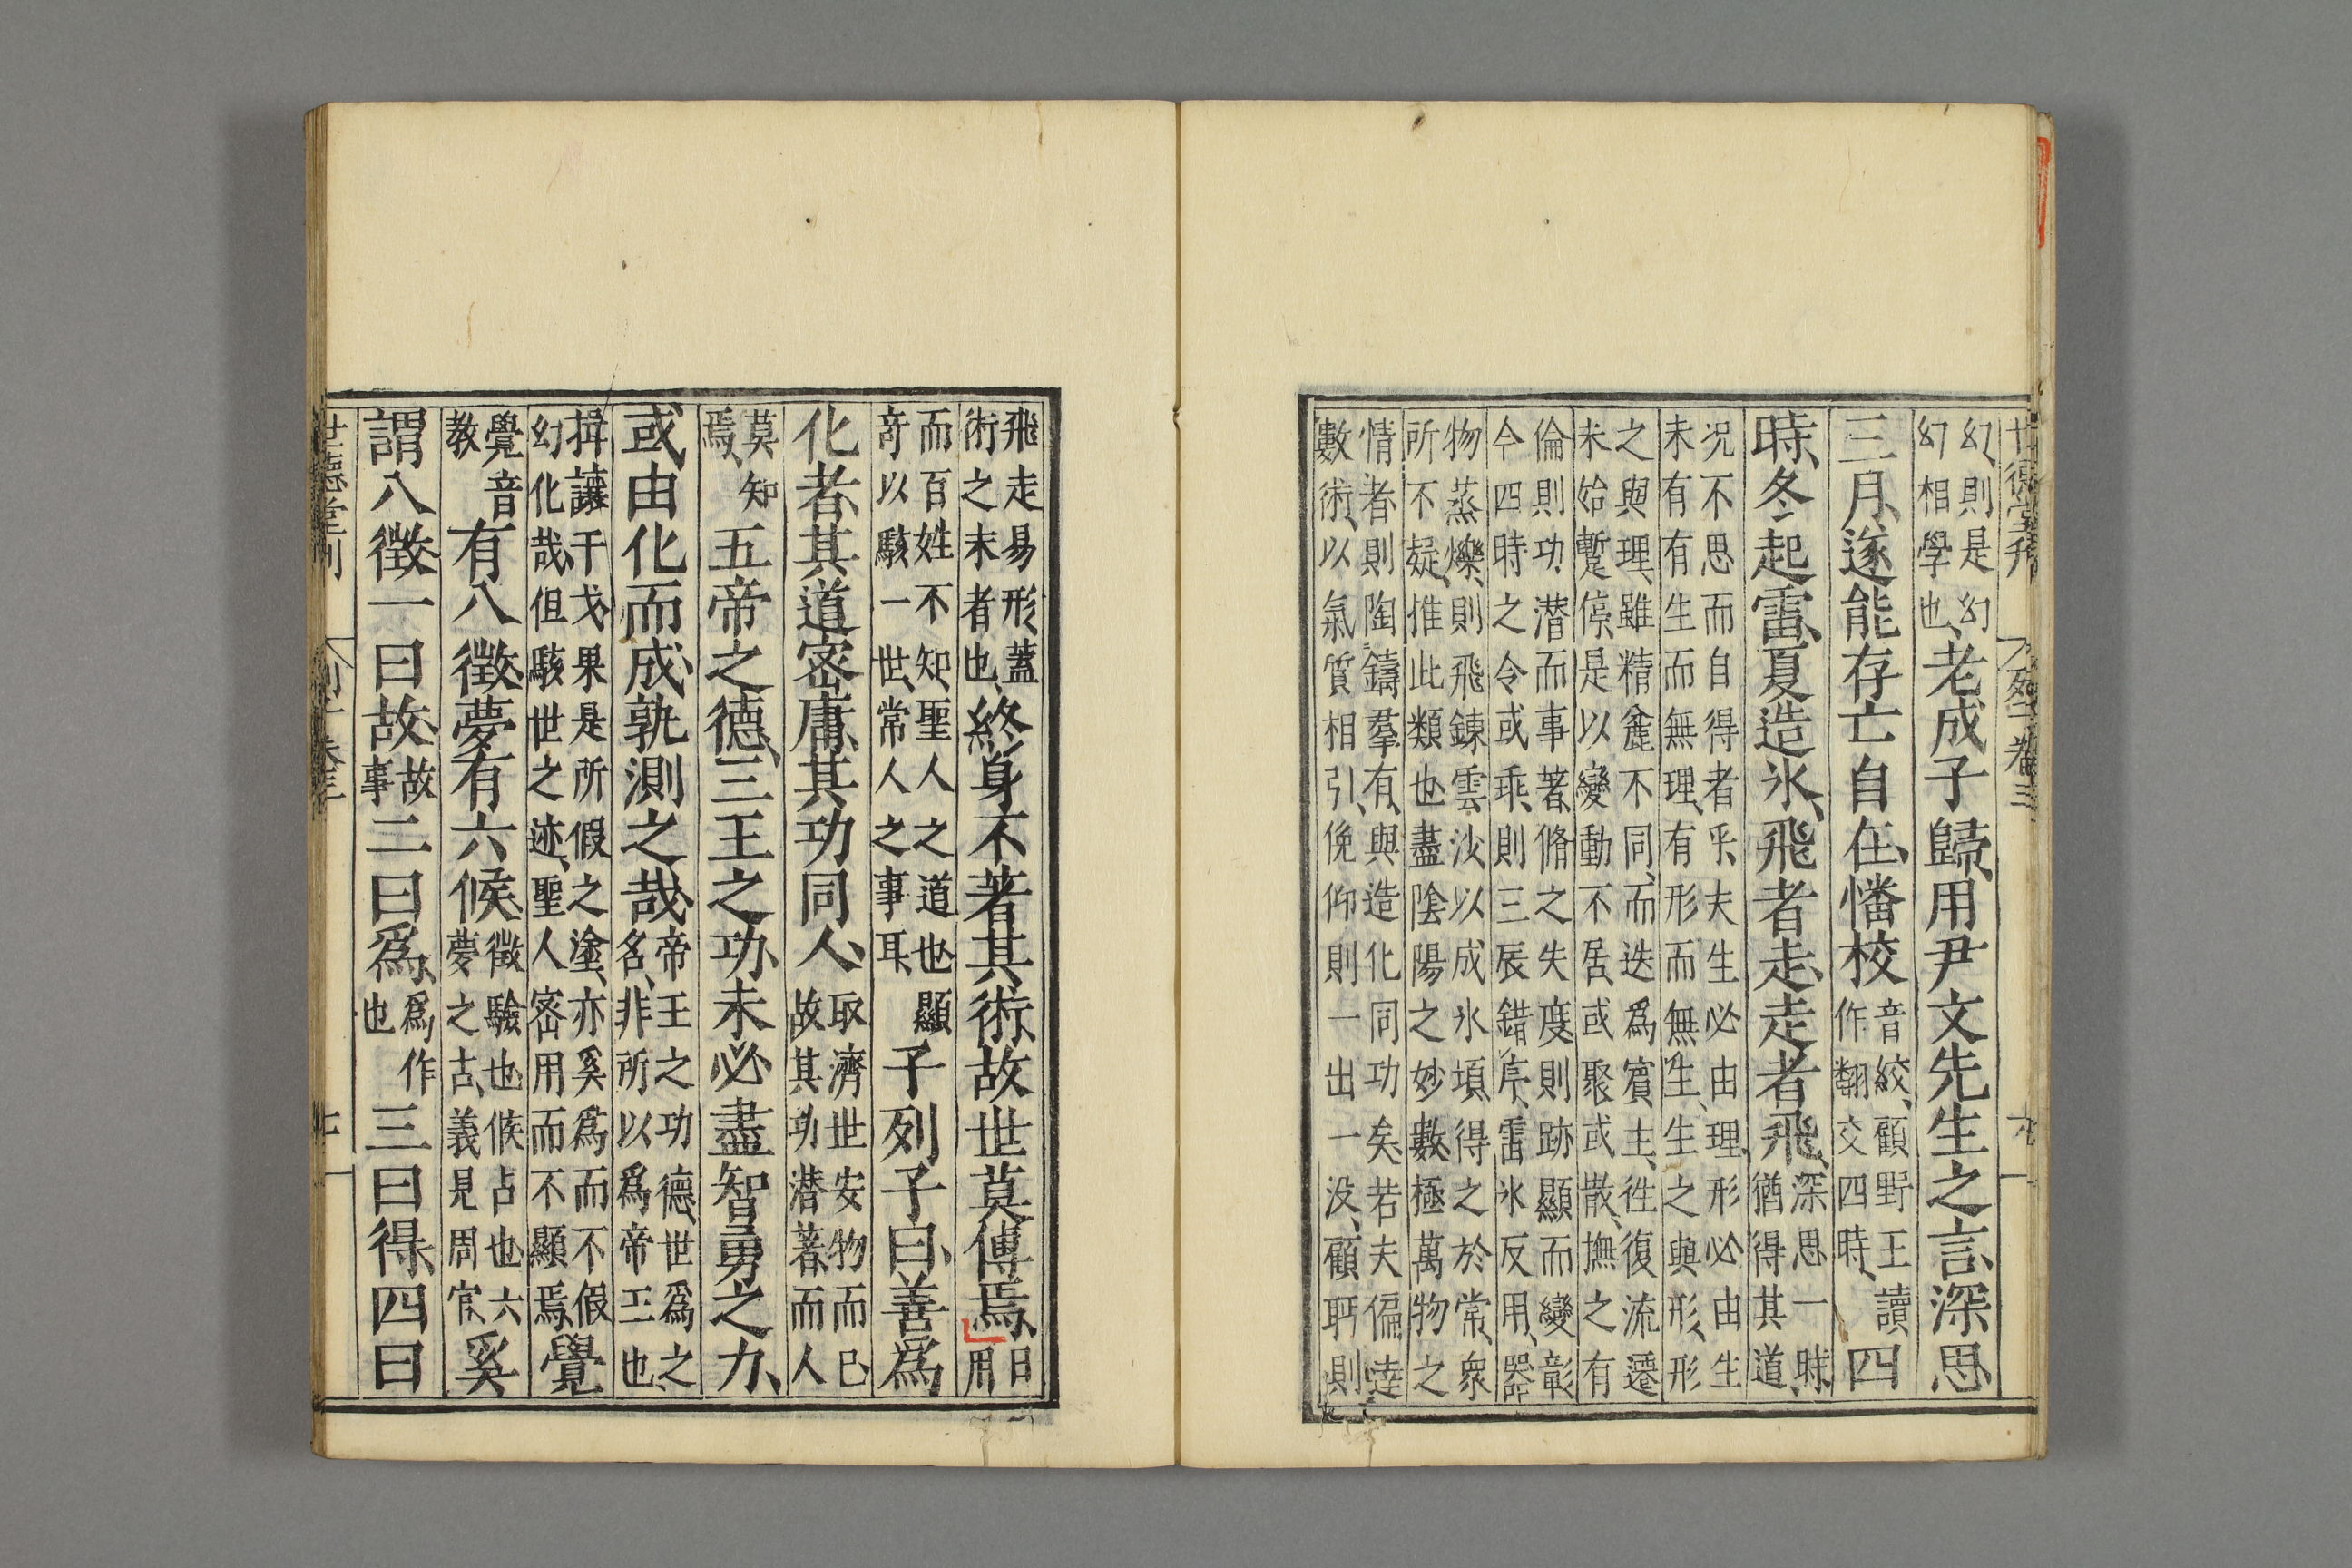 幻則是幻
幻相學也老成子歸用尹文先生之言深思
三月遂能存亡自在憣校音絞顧野王讀
作翻交四時四
時冬起雷夏造氷飛者走走者飛深思一時
猶得其道
况不思而自得者乎夫生必由理形必由生
未有有生而無理有形而無生生之與形形
之與理雖精麄不同而迭爲賓主往復流遷
未始暫停是以變動不居或聚或散撫之有
倫則功潜而事著脩之失度則跡顯而變彰
今四時之令或乖則三辰錯序雷氷反用器
物蒸爍則飛鍊雲沙以成氷澒得之於常衆
所不疑推此類也盡陰陽之妙數極萬物之
情者則陶鑄羣有與造化同功矣若夫偏達
數術以氣質相引俛仰則一出一没顧眄則
飛走易形蓋
術之末者也終身不著其術故世莫傳焉日用
而百姓不知聖人之道也顯
竒以駭一世常人之事耳子列子曰善爲
化者其道密庸其功同人取濟世安物而已
故其功潜著而人
莫知
焉五帝之德三王之功未必盡智勇之力
或由化而成孰測之哉帝王之功德世爲之
名非所以爲帝王也
揖讓干戈果是所假之塗亦奚爲而不假
幻化哉但駭世之迹聖人密用而不顯焉覺
覺音
教有八徵夢有六候徵驗也候占也六
夢之占義見周官奚
謂八徵一曰故故事二曰爲爲作也三曰得四曰
世德堂刊
列子卷三